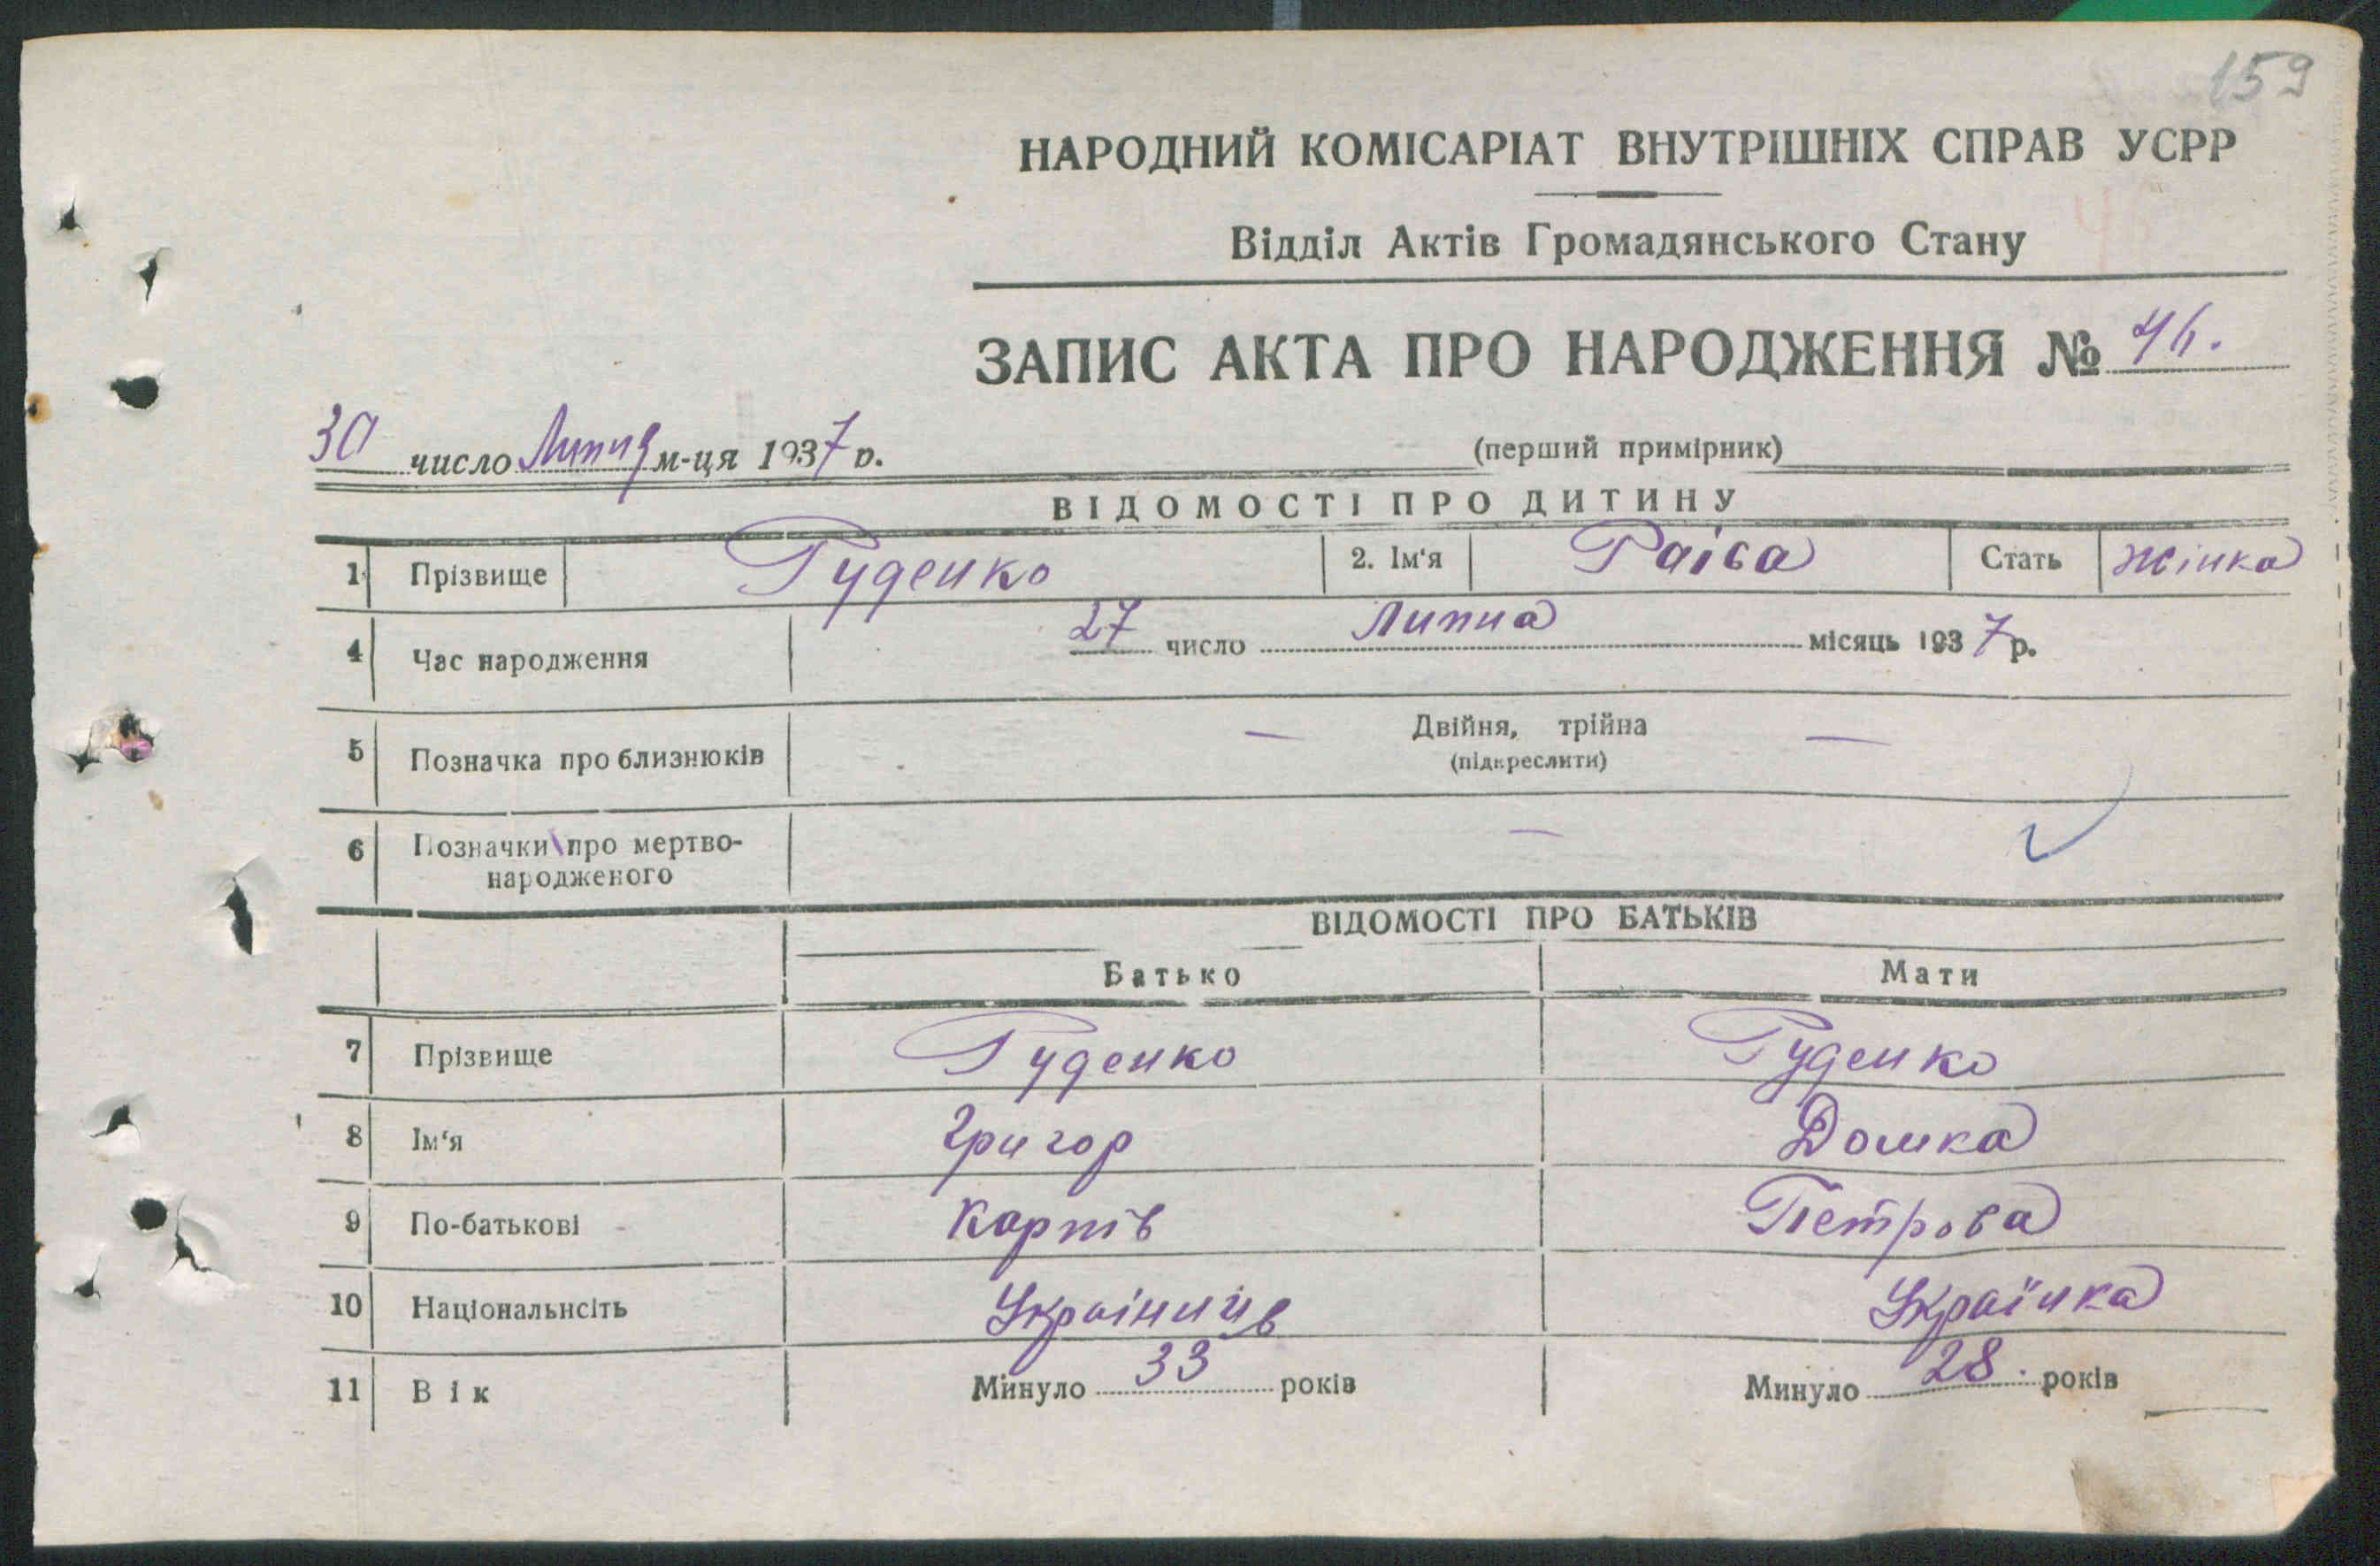 159
НАРОДНИЙ КОМІСАРІАТ ВНУТРІШНІХ СПРАВ УСРР
Відділ Актів Громадянського Стану
ЗАПИС АКТА ПРО НАРОДЖЕННЯ №
30 число Липня м-ця 1937 р.
(перший примірник)
ВІДОМОСТІ ПРО ДИТИНУ
1 Прізвище Руденко 2. Ім‘я Раіса Стать Жінка
4 Час народження 27 число Липна місяць 1937 р.
5 Позначка про близнюків — Двійня, трійна —
(підкреслити)
6 Позначки про мертво- —
народженого
ВІДОМОСТІ ПРО БАТЬКІВ
Батько Мати
7 Прізвище Руденко Руденко
8 Ім‘я Григор Домка
9 По-батькові Карпів Петрова
10 Національнсіть Украінець Українка
11 Вік Минуло 33 років Минуло 28. років